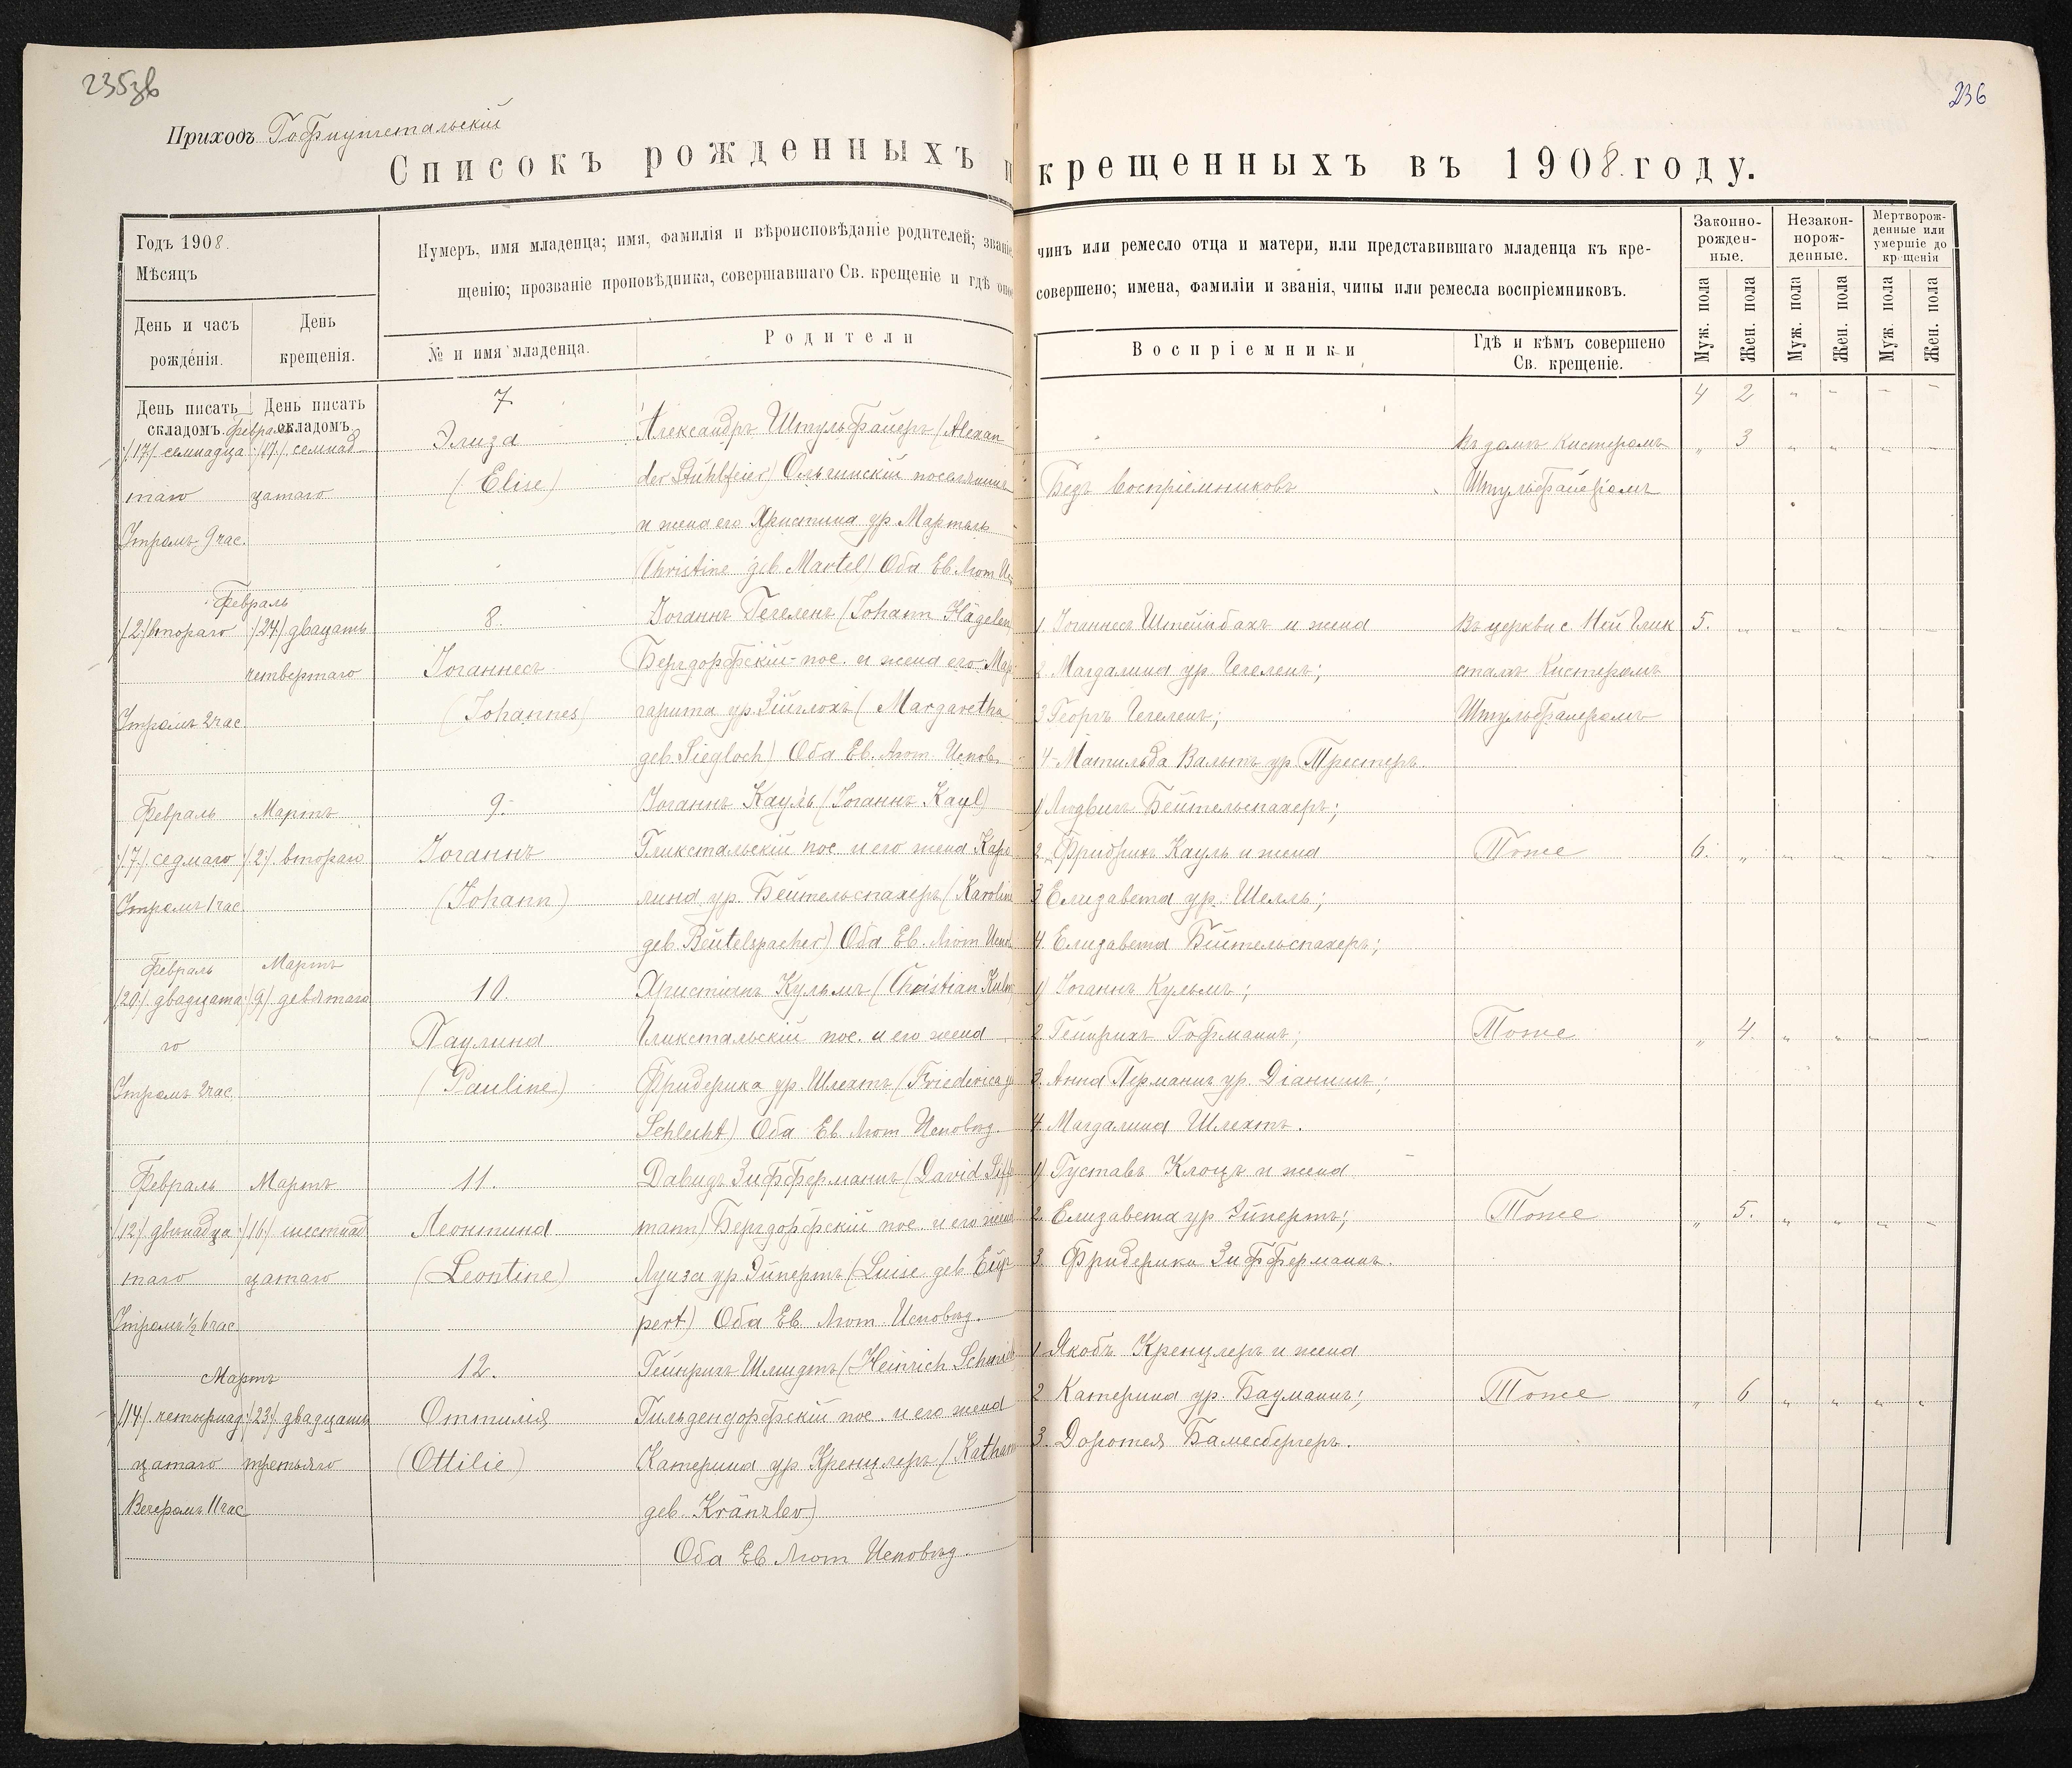 235зв
236
Приходъ Гофнунгстальскій
Списокъ рожденныхъ и крещенныхъ въ 1908. году.
Годъ 1908.
Мѣсяцъ
День и часъ рожденія.
День крещенія.
Нумеръ, имя младенца; имя, фамилія и вѣроисповѣданіе родителей; званіе, чинъ или ремесло отца и матери, или представившаго младенца къ кре-
щенію; прозваніе проповѣдника, совершавшаго Св. крещеніе и гдѣ оное совершено; имена, фамиліи и званія, чины или ремесла воспріемниковъ.
№ и имя младенца.
Родители
Воспріемники
Гдѣ и кѣмъ совершено Св. крещеніе.
Законно-рожден-ные.
Незакон-норож-денные.
Мертворож-денные или умершіе до крещенія
Муж. пола
Жен. пола
Муж. пола
Жен. пола
Муж. пола
Жен. пола
День писать складомъ.
День писать складомъ.
4 2 " - - -
Февраль
/17/ семнадца
таго
Утромъ 9 час.
/17/ семнад
цатаго
7.
Элиза
(Elise)
Александръ Штульфайеръ (Alexan
der Stühlfeier) Ольгинскій поселянинъ
и жена его Христина ур. Мартель
(Christine geb. Martel) Оба Ев. Лют Ис
"
Безъ воспріемниковъ
Въ домѣ Кистеромъ
Штульфайеромъ
" 3 " " " "
Февраль
/2/ втораго
Утромъ 2 час.
/24/ двацать
четвертаго
8.
Іоганнесъ
(Johannes)
Іоганнъ Гегеленъ (Johann Hägelen
Бергдорфскій пос. и жена его Мар
гарита ур. Зиглохъ (Margaretha
geb. Siegloch) Оба Ев. Лют. Испов.
1. Іоганнесъ Штейнбахъ и жена
2. Магдалина ур. Гегеленъ;
3 Георгъ Гегеленъ;
4 Матильда Вальтъ ур. Трестеръ.
Въ церкви с. Ной Глик
сталь Кистеромъ
Штульфайеромъ
5. " " " " "
Февраль
/7/ седмаго
Утромъ 1 час.
Мартъ
/2/ втораго
9.
Іоганнъ
(Johann)
Іоганнъ Кауль (Іоганнъ Kaul)
Гликстальскій пос. и его жена Каро
лина ур. Бейтельспахеръ (Karoline
geb. Beutelspacher) Оба Ев. Лют Испов
1) Людвигъ Бейтельспахеръ;
2. Фридрихъ Кауль и жена
3 Елизавета ур. Шелль;
4. Елизавета Бейтельспахеръ;
Тоже
6. " " " " "
Февраль
/20/ двадцата
го
Утромъ 2 час.
Мартъ
/9/ девятаго
10.
Паулина
(Pauline)
Христіанъ Кульмъ (Christian Kulm
Гликстальскій пос. и его жена
Фридерика ур. Шлехтъ (Friederica g
Schlecht) Оба Ев. Лют Исповѣд.
1) Іоганнъ Кульмъ;
2. Гейнрихъ Гофманнъ;
3. Анна
4. Магдалина Шлехтъ.
Тоже
" 4. " " " "
Февраль
/12/ двѣнадца
таго
Утромъ ½ 6 час.
Мартъ
/16/ шестнад
цатаго
11.
Леонтина
(Leontine)
Давидъ Зифферманнъ (David Siff
mann) Бергдорфскій пос. и его жена
Луиза ур. Эйпертъ (Luise geb. Eip
pert) Оба Ев. Лют. Исповѣд.
1) Густавъ Клоцъ и жена
2. Елизавета ур. Эйпертъ;
3. Фридерика Зифферманнъ.
Тоже
" 5. " " " "
Мартъ
/14/ четырнад
цатаго
Вечеромъ 11 час
/23/ двадцать
третьяго
12.
Оттилія
(Ottilie)
Гейнрихъ Шмидтъ (Heinrich Schmidt
Гильдендорфскій пос. и его жена
Катерина ур. Кренцлеръ (Kathari
geb. Kränzler)
Оба Ев. Лют Исповѣд.
1. Якобъ Кренцлеръ и жена
2 Катерина ур. Бауманнъ;
3. Доротея Бамесбергеръ.
Тоже
" 6 " " " "